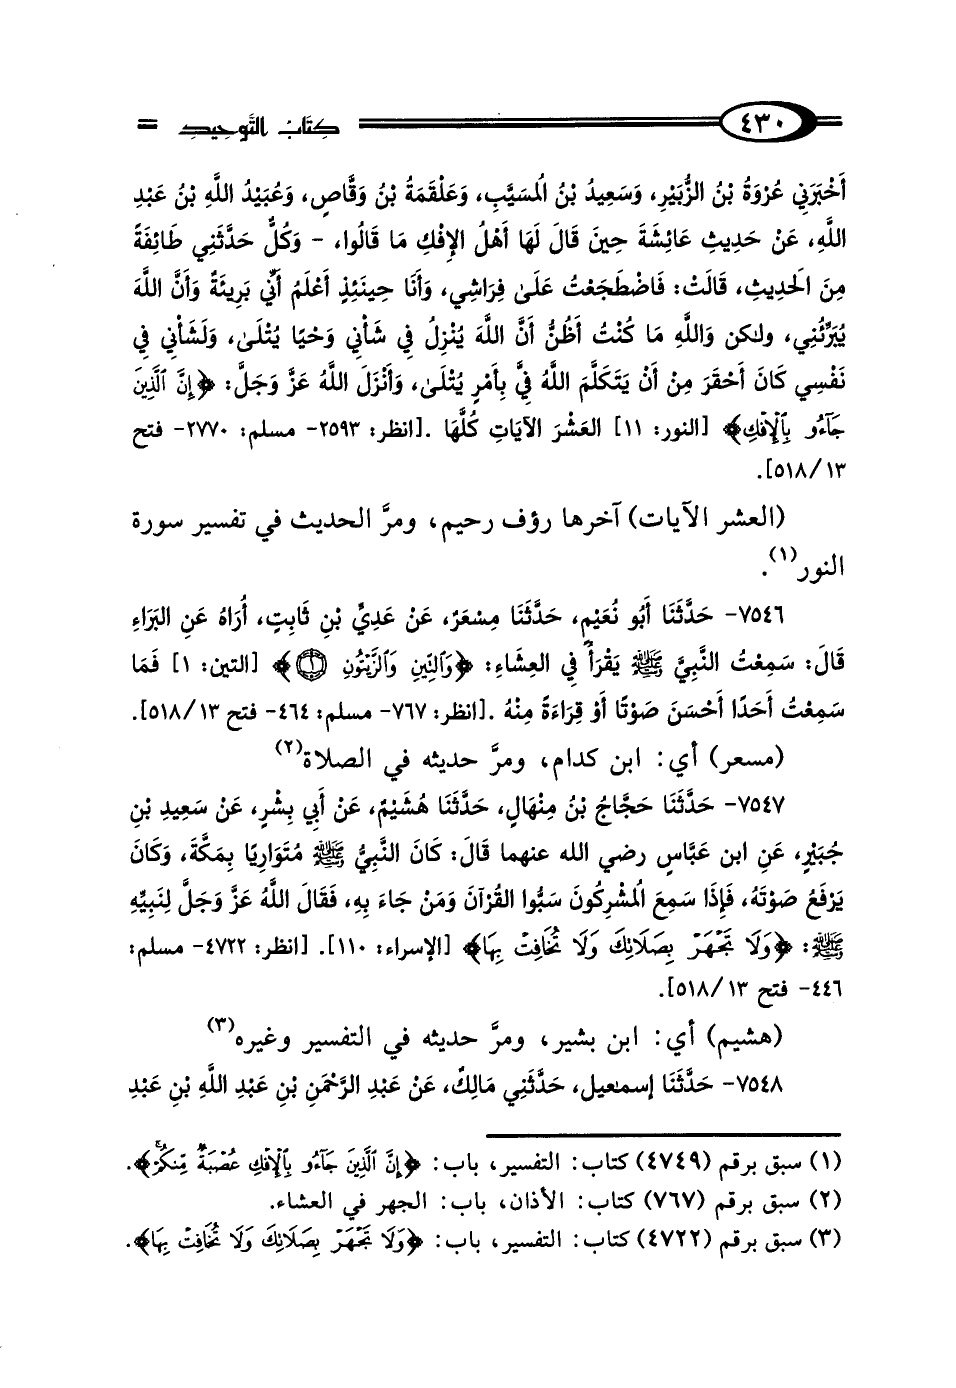 ٤٣٠ كتاب التَّوحيد
أَخْبَرَنِي عُرْوَةُ بْنُ الزُّبَيْرِ، وَسَعِيدُ بْنُ الُمسَيَّبِ، وَعَلْقَمَةُ بْنُ وَقَّاصٍ، وَعُبَيْدُ اللَّهِ بْنُ عَبْدِ
اللَّهِ، عَنْ حَدِيثِ عَائِشَةَ حِينَ قَالَ لَهَا أَهْلُ الإِفْكِ مَا قَالُوا، - وَكُلٌّ حَدَّثَنِي طَائِفَةً
مِنَ الَحدِيثِ، قَالَتْ: فَاضْطَجَعْتُ عَلَىٰ فِرَاشِي، وَأَنَا حِينَئِذٍ أَعْلَمُ أَنِّي بَرِيئَةٌ وَأَنَّ اللَّهَ
يُبَرِّئُنِي، ولكن وَاللَّهِ مَا كُنْتُ أَظُنُّ أَنَّ اللَّهَ يُنْزِلُ فِي شَأْنِي وَحْيًا يُتْلَىٰ، وَلَشَأْنِي فِي
نَفْسِي كَانَ أَحْقَرَ مِنْ أَنْ يَتَكَلَّمَ اللَّهُ فِيَّ بِأَمْرٍ يُتْلَىٰ، وَأَنْزَلَ اللَّهُ عَزَّ وَجَلَّ: ﴿إِنَّ ٱلَّذِينَ
جَآءُو بِٱلْإِفْكِ﴾ [النور: ١١] العَشْرَ الآيَاتِ كُلَّهَا .[انظر: ٢٥٩٣- مسلم: ٢٧٧٠- فتح
١٣/ ٥١٨].
(العشر الآيات) آخرها رؤف رحيم، ومرَّ الحديث في تفسير سورة
النور(١).
٧٥٤٦- حَدَّثَنَا أَبُو نُعَيْمٍ، حَدَّثَنَا مِسْعَرٌ، عَنْ عَدِيِّ بْنِ ثَابِتٍ، أُرَاهُ عَنِ البَرَاءِ
قَالَ: سَمِعْتُ النَّبِيَّ ﷺ يَقْرَأُ فِي العِشَاءِ: ﴿وَٱلتِّينِ وَٱلزَّيْتُونِ ۝١﴾ [التين: ١] فَمَا
سَمِعْتُ أَحَدًا أَحْسَنَ صَوْتًا أَوْ قِرَاءَةً مِنْهُ .[انظر: ٧٦٧- مسلم: ٤٦٤- فتح ١٣/ ٥١٨].
(مسعر) أي: ابن كدام، ومرَّ حديثه في الصلاة(٢)
٧٥٤٧- حَدَّثَنَا حَجَّاجُ بْنُ مِنْهَالٍ، حَدَّثَنَا هُشَيْمٌ، عَنْ أَبِي بِشْرٍ، عَنْ سَعِيدِ بْنِ
جُبَيْرٍ، عَنِ ابن عَبَّاسٍ رضي الله عنهما قَالَ: كَانَ النَّبِيُّ ﷺ مُتَوَارِيًا بِمَكَّةَ، وَكَانَ
يَرْفَعُ صَوْتَهُ، فَإِذَا سَمِعَ الُمشْرِكُونَ سَبُّوا القُرْآنَ وَمَنْ جَاءَ بِهِ، فَقَالَ اللَّهُ عَزَّ وَجَلَّ لِنَبِيِّهِ
ﷺ: ﴿وَلَا تَجْهَرْ بِصَلَاتِكَ وَلَا تُخَافِتْ بِهَا﴾ [الإسراء: ١١٠]. [انظر: ٤٧٢٢- مسلم:
٤٤٦- فتح ١٣/ ٥١٨].
(هشيم) أي: ابن بشير، ومرَّ حديثه في التفسير وغيره(٣)
٧٥٤٨- حَدَّثَنَا إسمعيل، حَدَّثَنِي مَالِكٌ، عَنْ عَبْدِ الرَّحْمَنِ بْنِ عَبْدِ اللَّهِ بْنِ عَبْدِ
(١) سبق برقم (٤٧٤٩) كتاب: التفسير، باب: ﴿إِنَّ ٱلَّذِينَ جَآءُو بِٱلْإِفْكِ عُصْبَةٌ مِّنكُمْ﴾.
(٢) سبق برقم (٧٦٧) كتاب: الأذان، باب: الجهر في العشاء.
(٣) سبق برقم (٤٧٢٢) كتاب: التفسير، باب: ﴿وَلَا تَجْهَرْ بِصَلَاتِكَ وَلَا تُخَافِتْ بِهَا﴾.